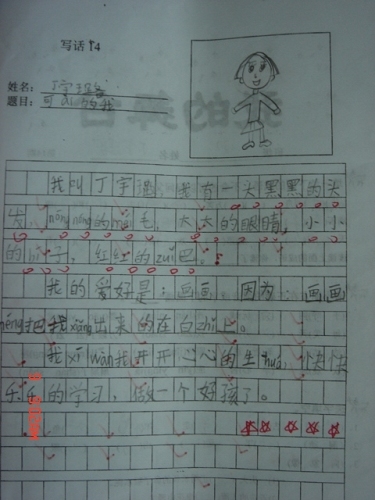 写话14
姓名：丁宇
题目：可爱的我
我叫丁宇 我有一头黑黑的头
发，nóng nóng的méi毛，大大的眼睛，小小
的bí子，红红的zuǐ巴。
我的爱好是：画画，因为 画画
néng把我xiǎng出来的在白zhǐ上。
我xī wàng我开开心心的生huó，快快
乐乐的学习，做一个好孩子。